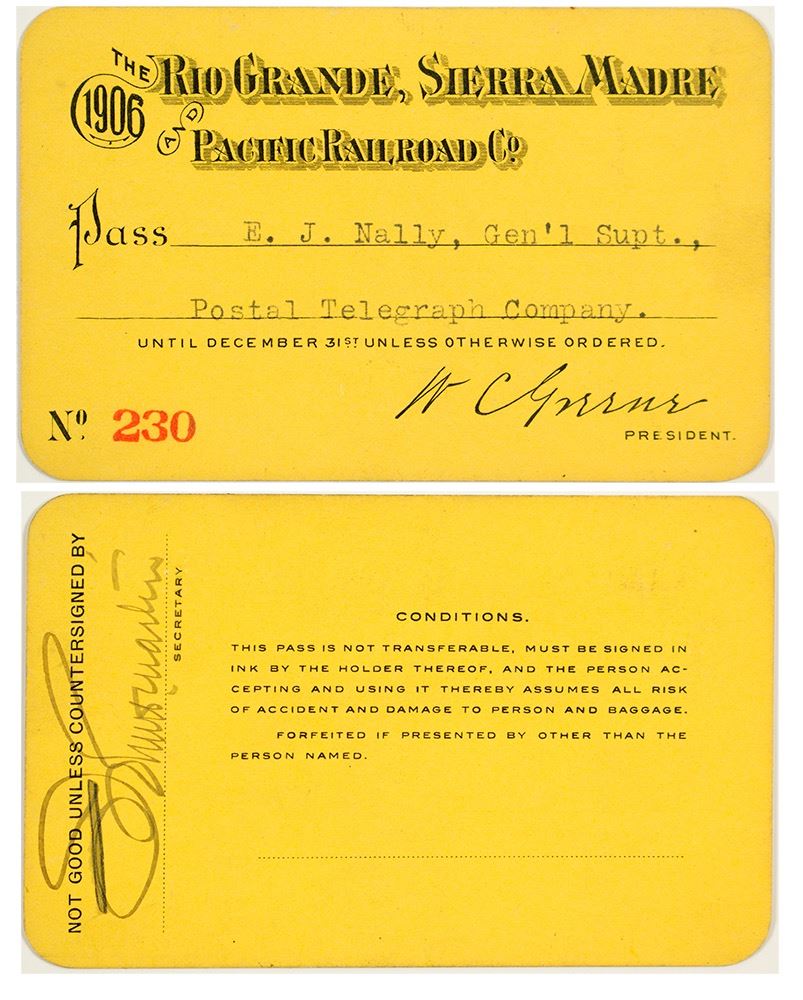 THE RIO GRANDE, SIERRA MADRE
1906
AND PACIFIC RAILROAD Co
Pass E. J. Nally, Gen'l Supt.,
Postal Telegraph Company.
UNTIL DECEMBER 31ST UNLESS OTHERWISE ORDERED.
W C Greene
No 230
PRESIDENT.
NOT GOOD UNLESS COUNTERSIGNED BY
SECRETARY
CONDITIONS.
THIS PASS IS NOT TRANSFERABLE, MUST BE SIGNED IN
INK BY THE HOLDER THEREOF, AND THE PERSON AC-
CEPTING AND USING IT THEREBY ASSUMES ALL RISK
OF ACCIDENT AND DAMAGE TO PERSON AND BAGGAGE.
FORFEITED IF PRESENTED BY OTHER THAN THE
PERSON NAMED.